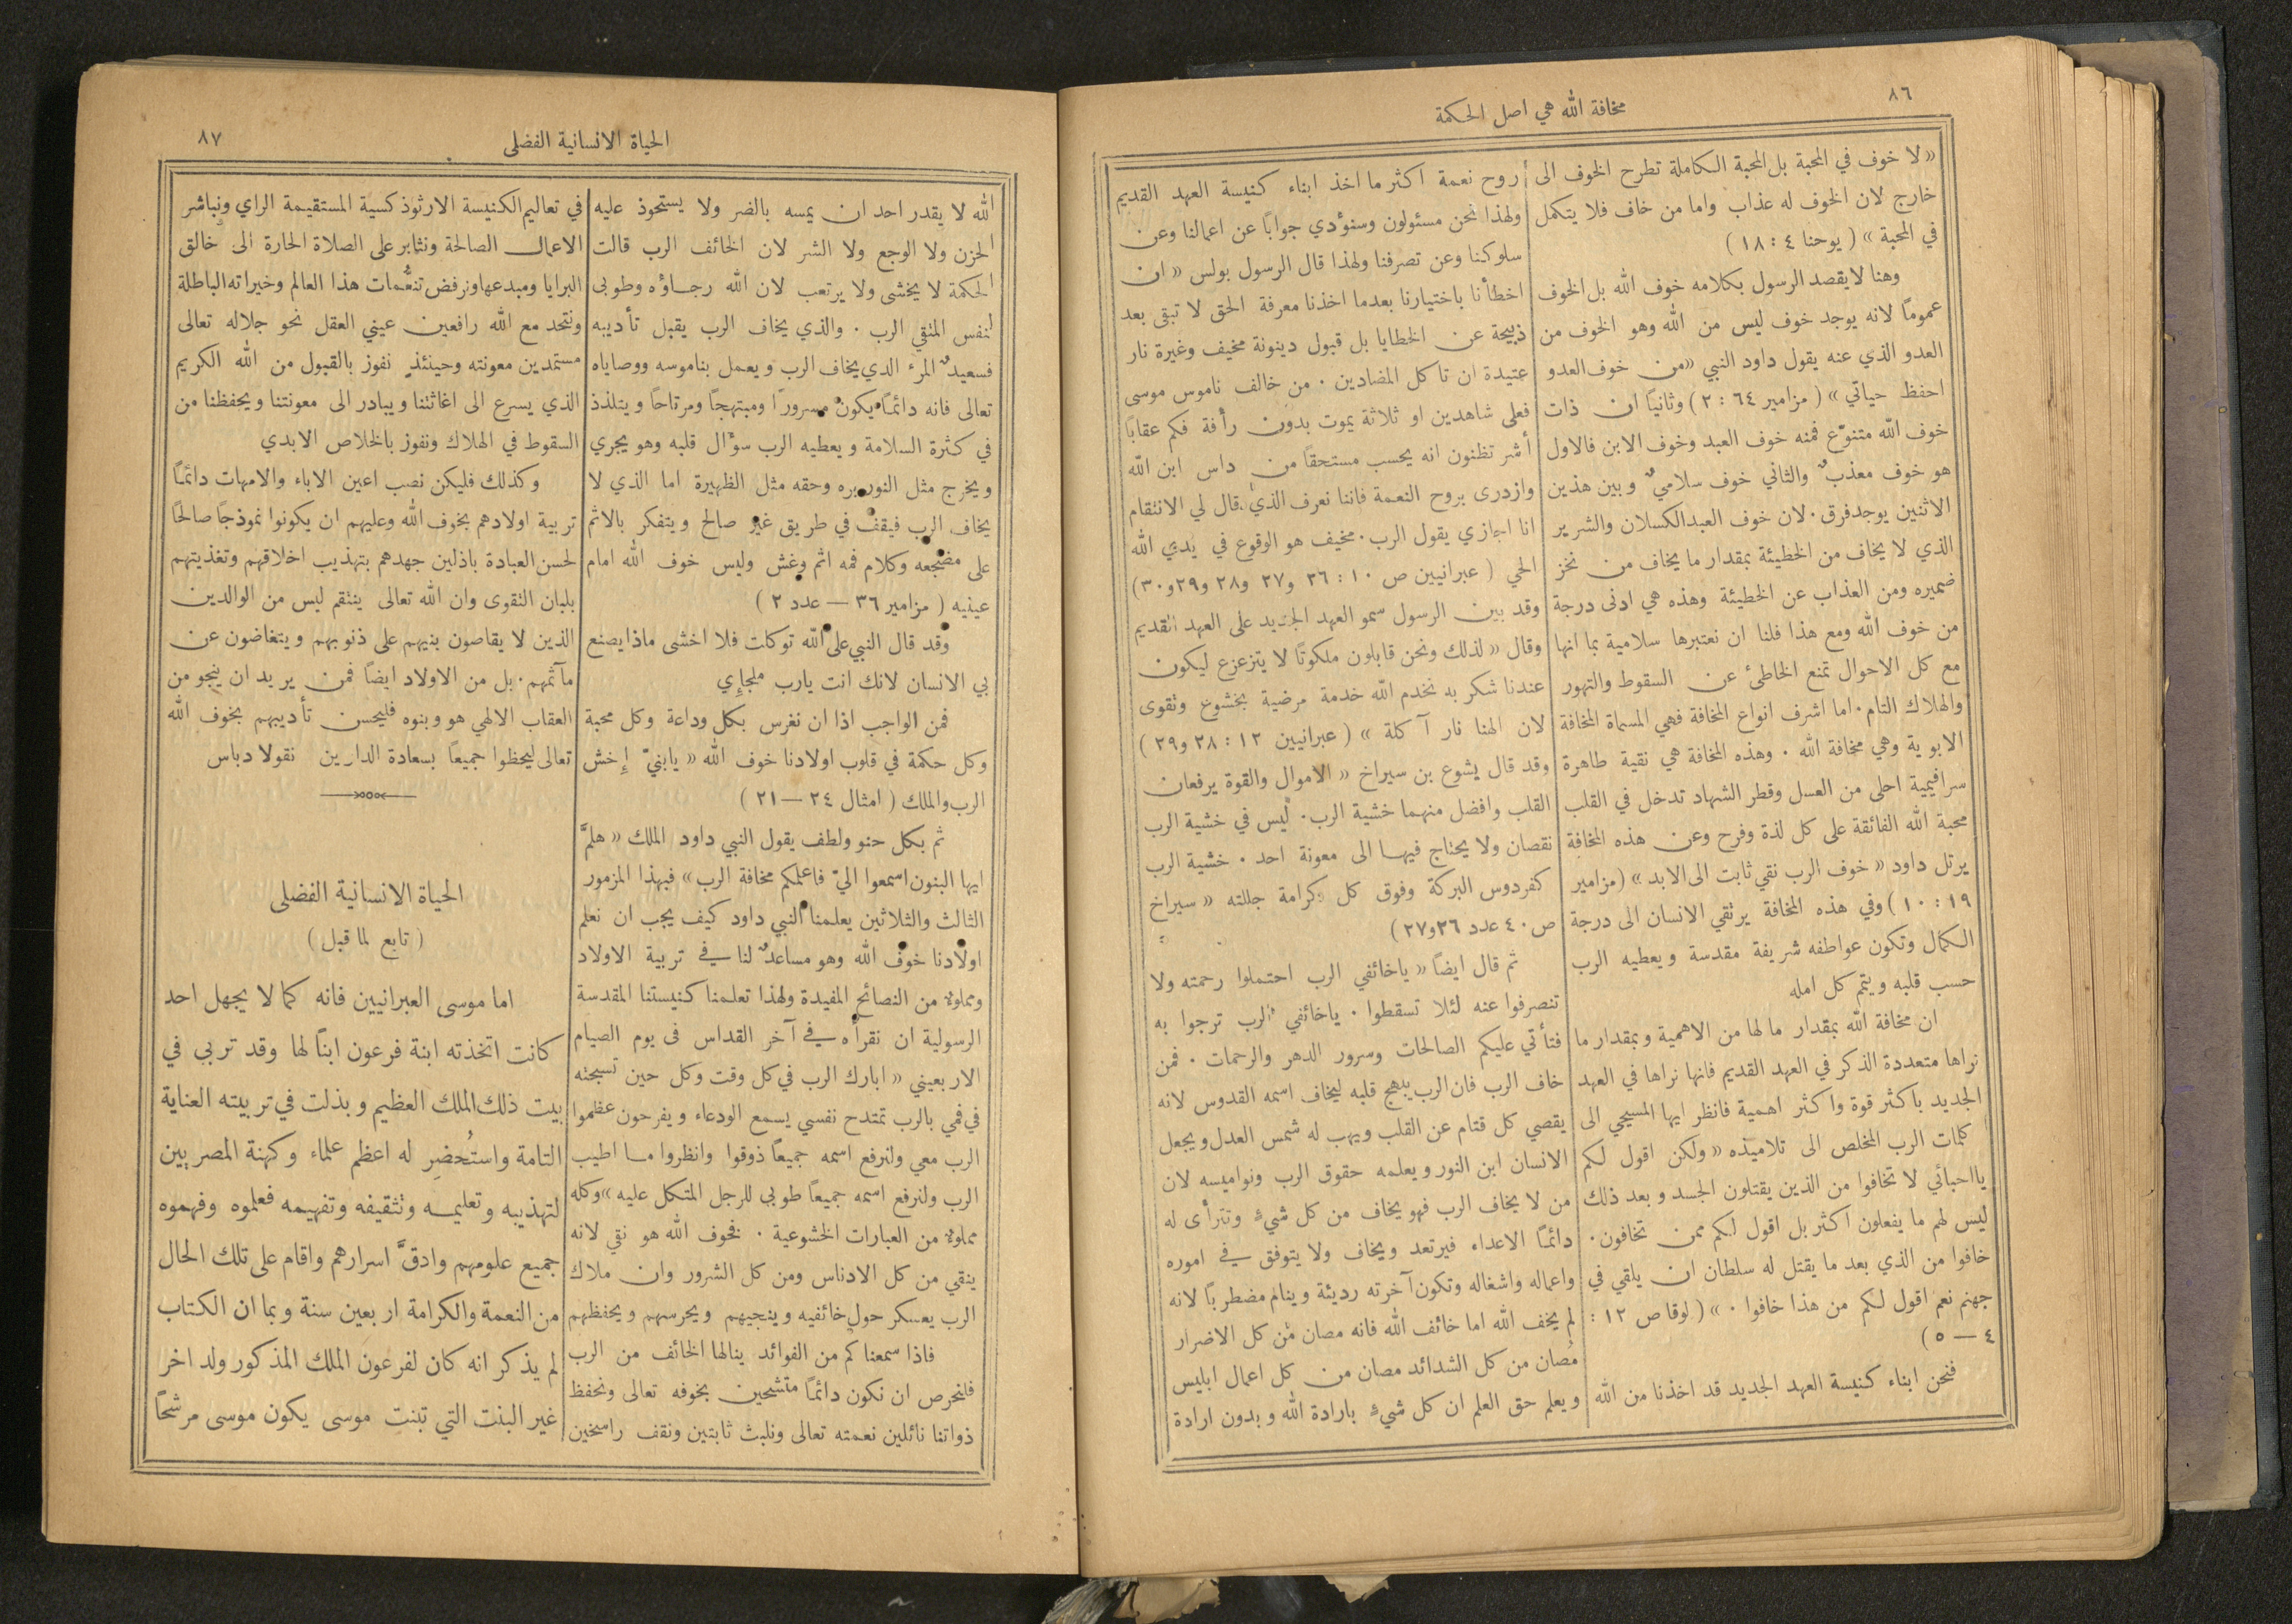 ٨٦
مخافة الله هي اصل الحكمة
«لا خوف في المحبة بل المحبة الكاملة تطرح الخوف الى
خارج لان الخوف له عذاب واما من خاف فلا يتكمل
في المحبة» (يوحنا ٤ : ١٨)
وهنا لا يقصد الرسول بكلامه خوف الله بل الخوف
عموماً لانه يوجد خوف ليس من الله وهو الخوف من
العدو الذي عنه يقول داود النبي «من خوف العدو
احفظ حياتي» (مزامير ٦٤ : ٢) وثانياً ان ذات
خوف الله متنوّع فمنه خوف العبد وخوف الابن فالاول
هو خوف معذبٌ والثاني خوف سلاميٌ وبين هذين
الاثنين يوجد فرق. لان خوف العبد الكسلان والشرير
الذي لا يخاف من الخطيئة بمقدار ما يخاف من نخز
ضميره ومن العذاب عن الخطيئة وهذه هي ادنى درجة
من خوف الله ومع هذا فلنا ان نعتبرها سلامية بما انها
مع كل الاحوال تمنع الخاطئ عن السقوط والتهور
والهلاك التام. اما اشرف انواع المخافة فهي المسماة المخافة
الابوية وهي مخافة الله. وهذه المخافة هي نقية طاهرة
سرافيمية احلى من العسل وقطر الشهاد تدخل في القلب
محبة الله الفائقة على كل لذة وفرح وعن هذه المخافة
يرتل داود «خوف الرب نقي ثابت الى الابد» (مزامير
١٩ : ١٠) وفي هذه المخافة يرتقي الانسان الى درجة
الكمال وتكون عواطفه شريفة مقدسة ويعطيه الرب
حسب قلبه ويتم كل امله
ان مخافة الله بمقدار ما لها من الاهمية وبمقدار ما
نراها متعددة الذكر في العهد القديم فانها نراها في العهد
الجديد باكثر قوة واكثر اهمية فانظر ايها المسيحي الى
كلمات الرب المخلص الى تلاميذه «ولكن اقول لكم
يااحبائي لا تخافوا من الذين يقتلون الجسد وبعد ذلك
ليس لهم ما يفعلون اكثر بل اقول لكم ممن تخافون.
خافوا من الذي بعد ما يقتل له سلطان ان يلقي في
جهنم نعم اقول لكم من هذا خافوا.» (لوقا ص ١٢ :
٤ — ٥)
فنحن ابناء كنيسة العهد الجديد قد اخذنا من الله
روح نعمة اكثر ما اخذ ابناء كنيسة العهد القديم
ولهذا نحن مسئولون وسنؤدي جواباً عن اعمالنا وعن
سلوكنا وعن تصرفنا ولهذا قال الرسول بولس «ان
اخطأنا باختيارنا بعدما اخذنا معرفة الحق لا تبقى بعد
ذبيحة عن الخطايا بل قبول دينونة مخيف وغيرة نار
عتيدة ان تاكل المضادين. من خالف ناموس موسى
فعلى شاهدين او ثلاثة يموت بدون رأفة فكم عقاباً
أشر تظنون انه يحسب مستحقاً من داس ابن الله
وازدرى بروح النعمة فاننا نعرف الذي قال لي الانتقام
انا اجازي يقول الرب. مخيف هو الوقوع في يدي الله
الحي (عبرانيين ص ١٠ : ٢٦ و٢٧ و٢٨ و٢٩ و٣٠)
وقد بين الرسول سمو العهد الجديد على العهد القديم
وقال «لذلك ونحن قابلون ملكوتاً لا يتزعزع ليكون
عندنا شكر به نخدم الله خدمة مرضية بخشوع وتقوى
لان الهنا نار آكلة» (عبرانيين ١٢ : ٢٨ و٢٩)
وقد قال يشوع بن سيراخ «الاموال والقوة يرفعان
القلب وافضل منهما خشية الرب. ليس في خشية الرب
نقصان ولا يحتاج فيها الى معونة احد. خشية الرب
كفردوس البركة وفوق كل كرامة جللته «سيراخ
ص ٤٠ عدد ٢٦ و٢٧)
ثم قال ايضاً «ياخائفي الرب احتملوا رحمته ولا
تنصرفوا عنه لئلا تسقطوا. ياخائفي الرب ترجوا به
فتأتي عليكم الصالحات وسرور الدهر والرحمات. فمن
خاف الرب فان الرب يبهج قلبه ليخاف اسمه القدوس لانه
يقصي كل قتام عن القلب ويهب له شمس العدل ويجعل
الانسان ابن النور ويعلمه حقوق الرب ونواميسه لان
من لا يخاف الرب فهو يخاف من كل شيءٍ وتترأى له
دائماً الاعداء فيرتعد ويخاف ولا يتوفق في اموره
واعماله واشغاله وتكون آخرته رديئة وينام مضطرباً لانه
لم يخف الله اما خائف الله فانه مصان من كل الاضرار
مُصان من كل الشدائد مصان من كل اعمال ابليس
ويعلم حق العلم ان كل شيءٍ بارادة الله وبدون ارادة
الحياة الانسانية الفضلى
٨٧
الله لا يقدر احد ان يمسه بالضر ولا يستحوذ عليه
الحزن ولا الوجع ولا الشر لان الخائف الرب قالت
الحكمة لا يخشى ولا يرتعب لان الله رجاؤه وطوبى
لنفس المتقي الرب. والذي يخاف الرب يقبل تأديبه
فسعيدٌ المرء الدي يخاف الرب ويعمل بناموسه ووصاياه
تعالى فانه دائماً يكون مسروراً ومبتهجاً ومرتاحاً ويتلذذ
في كثرة السلامة ويعطيه الرب سؤال قلبه وهو يجري
ويخرج مثل النور بره وحقه مثل الظهيرة اما الذي لا
يخاف الرب فيقف في طريق غير صالح ويتفكر بالاثم
على مضجعه وكلام فمه اثم وغش وليس خوف الله امام
عينيه (مزامير ٣٦ — عدد ٢)
وقد قال النبي على الله توكلت فلا اخشى ماذا يصنع
بي الانسان لانك انت يارب ملجاٍي
فمن الواجب اذا ان نغرس بكل وداعة وكل محبة
وكل حكمة في قلوب اولادنا خوف الله «يابنيّ إخش
الرب والملك (امثال ٢٤ — ٢١)
ثم بكل حنو ولطف يقول النبي داود الملك «هلمَّ
ايها البنون اسمعوا اليّ فاعلمكم مخافة الرب» فبهذا المزمور
الثالث والثلاثين يعلمنا النبي داود كيف يجب ان نعلم
اولادنا خوف الله وهو مساعدٌ لنا في تربية الاولاد
ومملوء من النصائح المفيدة ولهذا تعلمنا كنيستنا المقدسة
الرسولية ان نقرأه في آخر القداس في يوم الصيام
الاربعيني «ابارك الرب في كل وقت وكل حين تسبحته
في فمي بالرب تمتدح نفسي يسمع الودعاء ويفرحون عظموا
الرب معي ولنرفع اسمه جميعاً ذوقوا وانظروا ما اطيب
الرب ولنرفع اسمه جميعاً طوبى للرجل المتكل عليه» وكله
مملوء من العبارات الخشوعية. فخوف الله هو نقي لانه
ينقي من كل الادناس ومن كل الشرور وان ملاك
الرب يعسكر حول خائفيه وينجيهم ويحرسهم ويحفظهم
فاذا سمعنا كم من الفوائد ينالها الخائف من الرب
فلنحرص ان نكون دائماً متشحين بخوفه تعالى ونحفظ
ذواتنا نائلين نعمته تعالى ونلبث ثابتين ونقف راسخين
في تعاليم الكنيسة الارثوذكسية المستقيمة الراي ونباشر
الاعمال الصالحة ونثابر على الصلاة الحارة الى خالق
البرايا ومبدعها ونرفض تنعُّمات هذا العالم وخيراته الباطلة
ونتحد مع الله رافعين عيني العقل نحو جلاله تعالى
مستمدين معونته وحينئذٍ نفوز بالقبول من الله الكريم
الذي يسرع الى اغاثتنا ويبادر الى معونتنا ويحفظنا من
السقوط في الهلاك ونفوز بالخلاص الابدي
وكذلك فليكن نصب اعين الاباء والامهات دائماً
تربية اولادهم بخوف الله وعليهم ان يكونوا نموذجاً صالحاً
لحسن العبادة باذلين جهدهم بتهذيب اخلاقهم وتغذيتهم
بلبان التقوى وان الله تعالى ينتقم ليس من الوالدين
الذين لا يقاصون بنيهم على ذنوبهم ويتغاضون عن
مآثمهم. بل من الاولاد ايضاً فمن يريد ان ينجو من
العقاب الالهي هو وبنوه فليحسن تأديبهم بخوف الله
تعالى ليحظوا جميعاً بسعادة الدارين نقولا دباس
الحياة الانسانية الفضلى
(تابع لما قبل)
اما موسى العبرانيين فانه كما لا يجهل احد
كانت اتخذته ابنة فرعون ابناً لها وقد تربى في
بيت ذلك الملك العظيم وبذلت في تربيته العناية
التامة واستُحضِر له اعظم علماء وكهنة المصريين
لتهذيبه وتعليمه وتثقيفه وتفهيمه فعلموه وفهموه
جميع علومهم وادقَّ اسرارهم واقام على تلك الحال
من النعمة والكرامة اربعين سنة وبما ان الكتاب
لم يذكر انه كان لفرعون الملك المذكور ولد اخر
غير البنت التي تبنت موسى يكون موسى مرشحاً